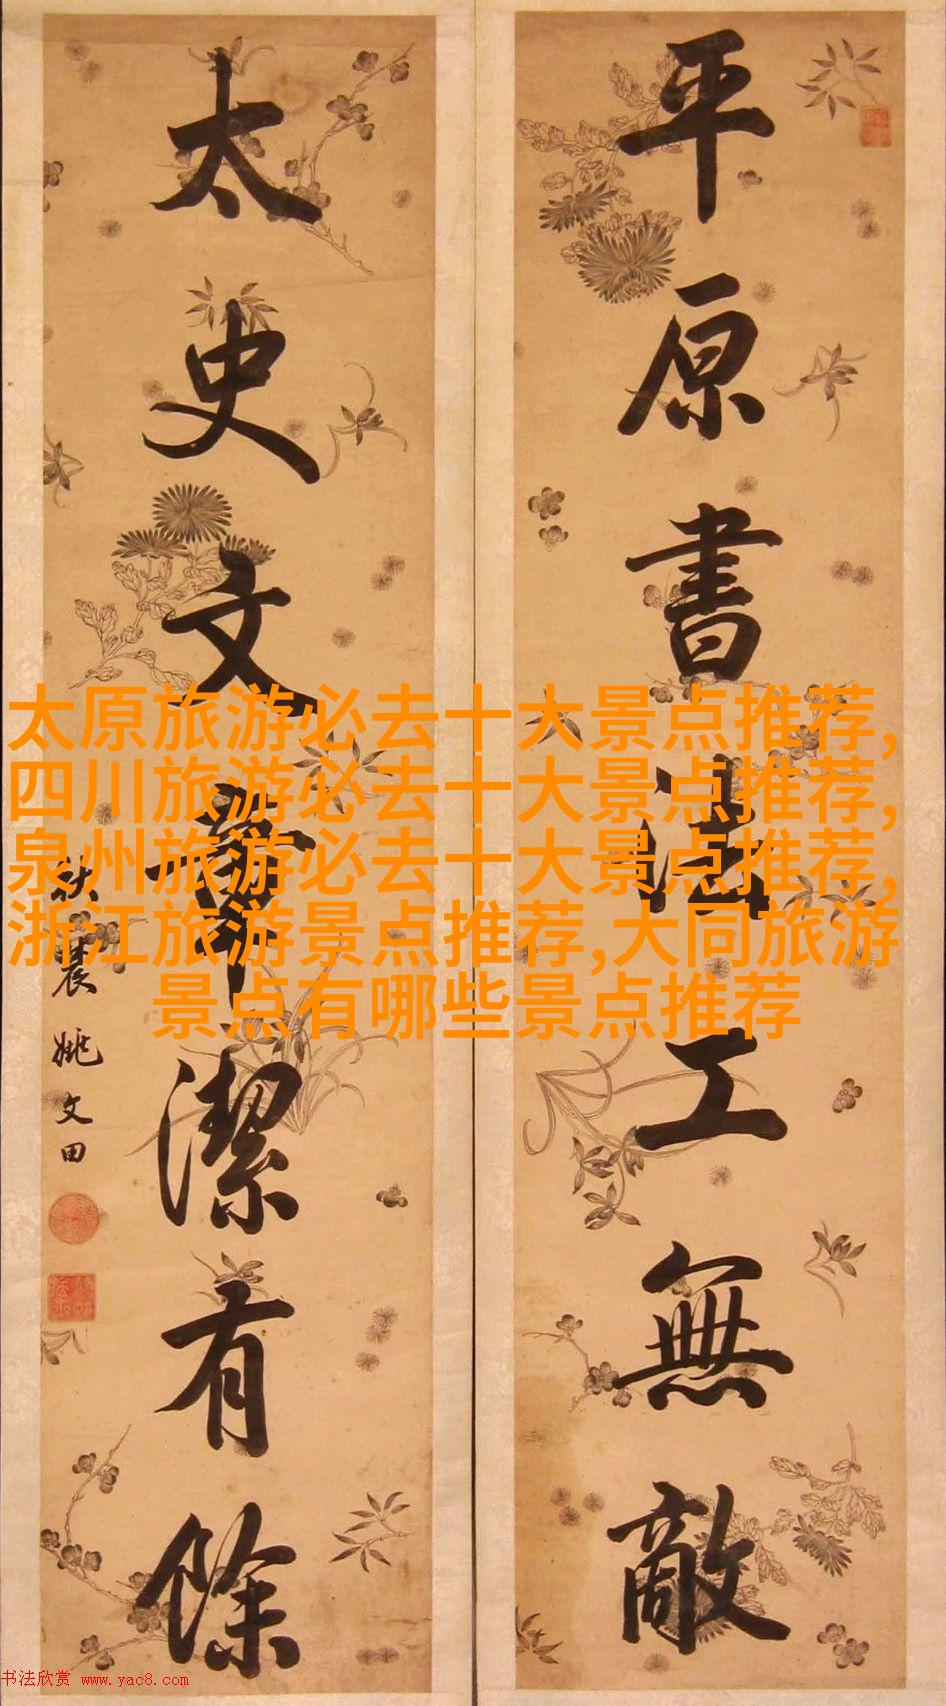 平原書法工無敵
太史文章潔有餘
秋農姚文田
太原旅游必去十大景点推荐,
四川旅游必去十大景点推荐,
泉州旅游必去十大景点推荐,
浙江旅游景点推荐,大同旅游
景点有哪些景点推荐
书法欣赏 www.yac8.com